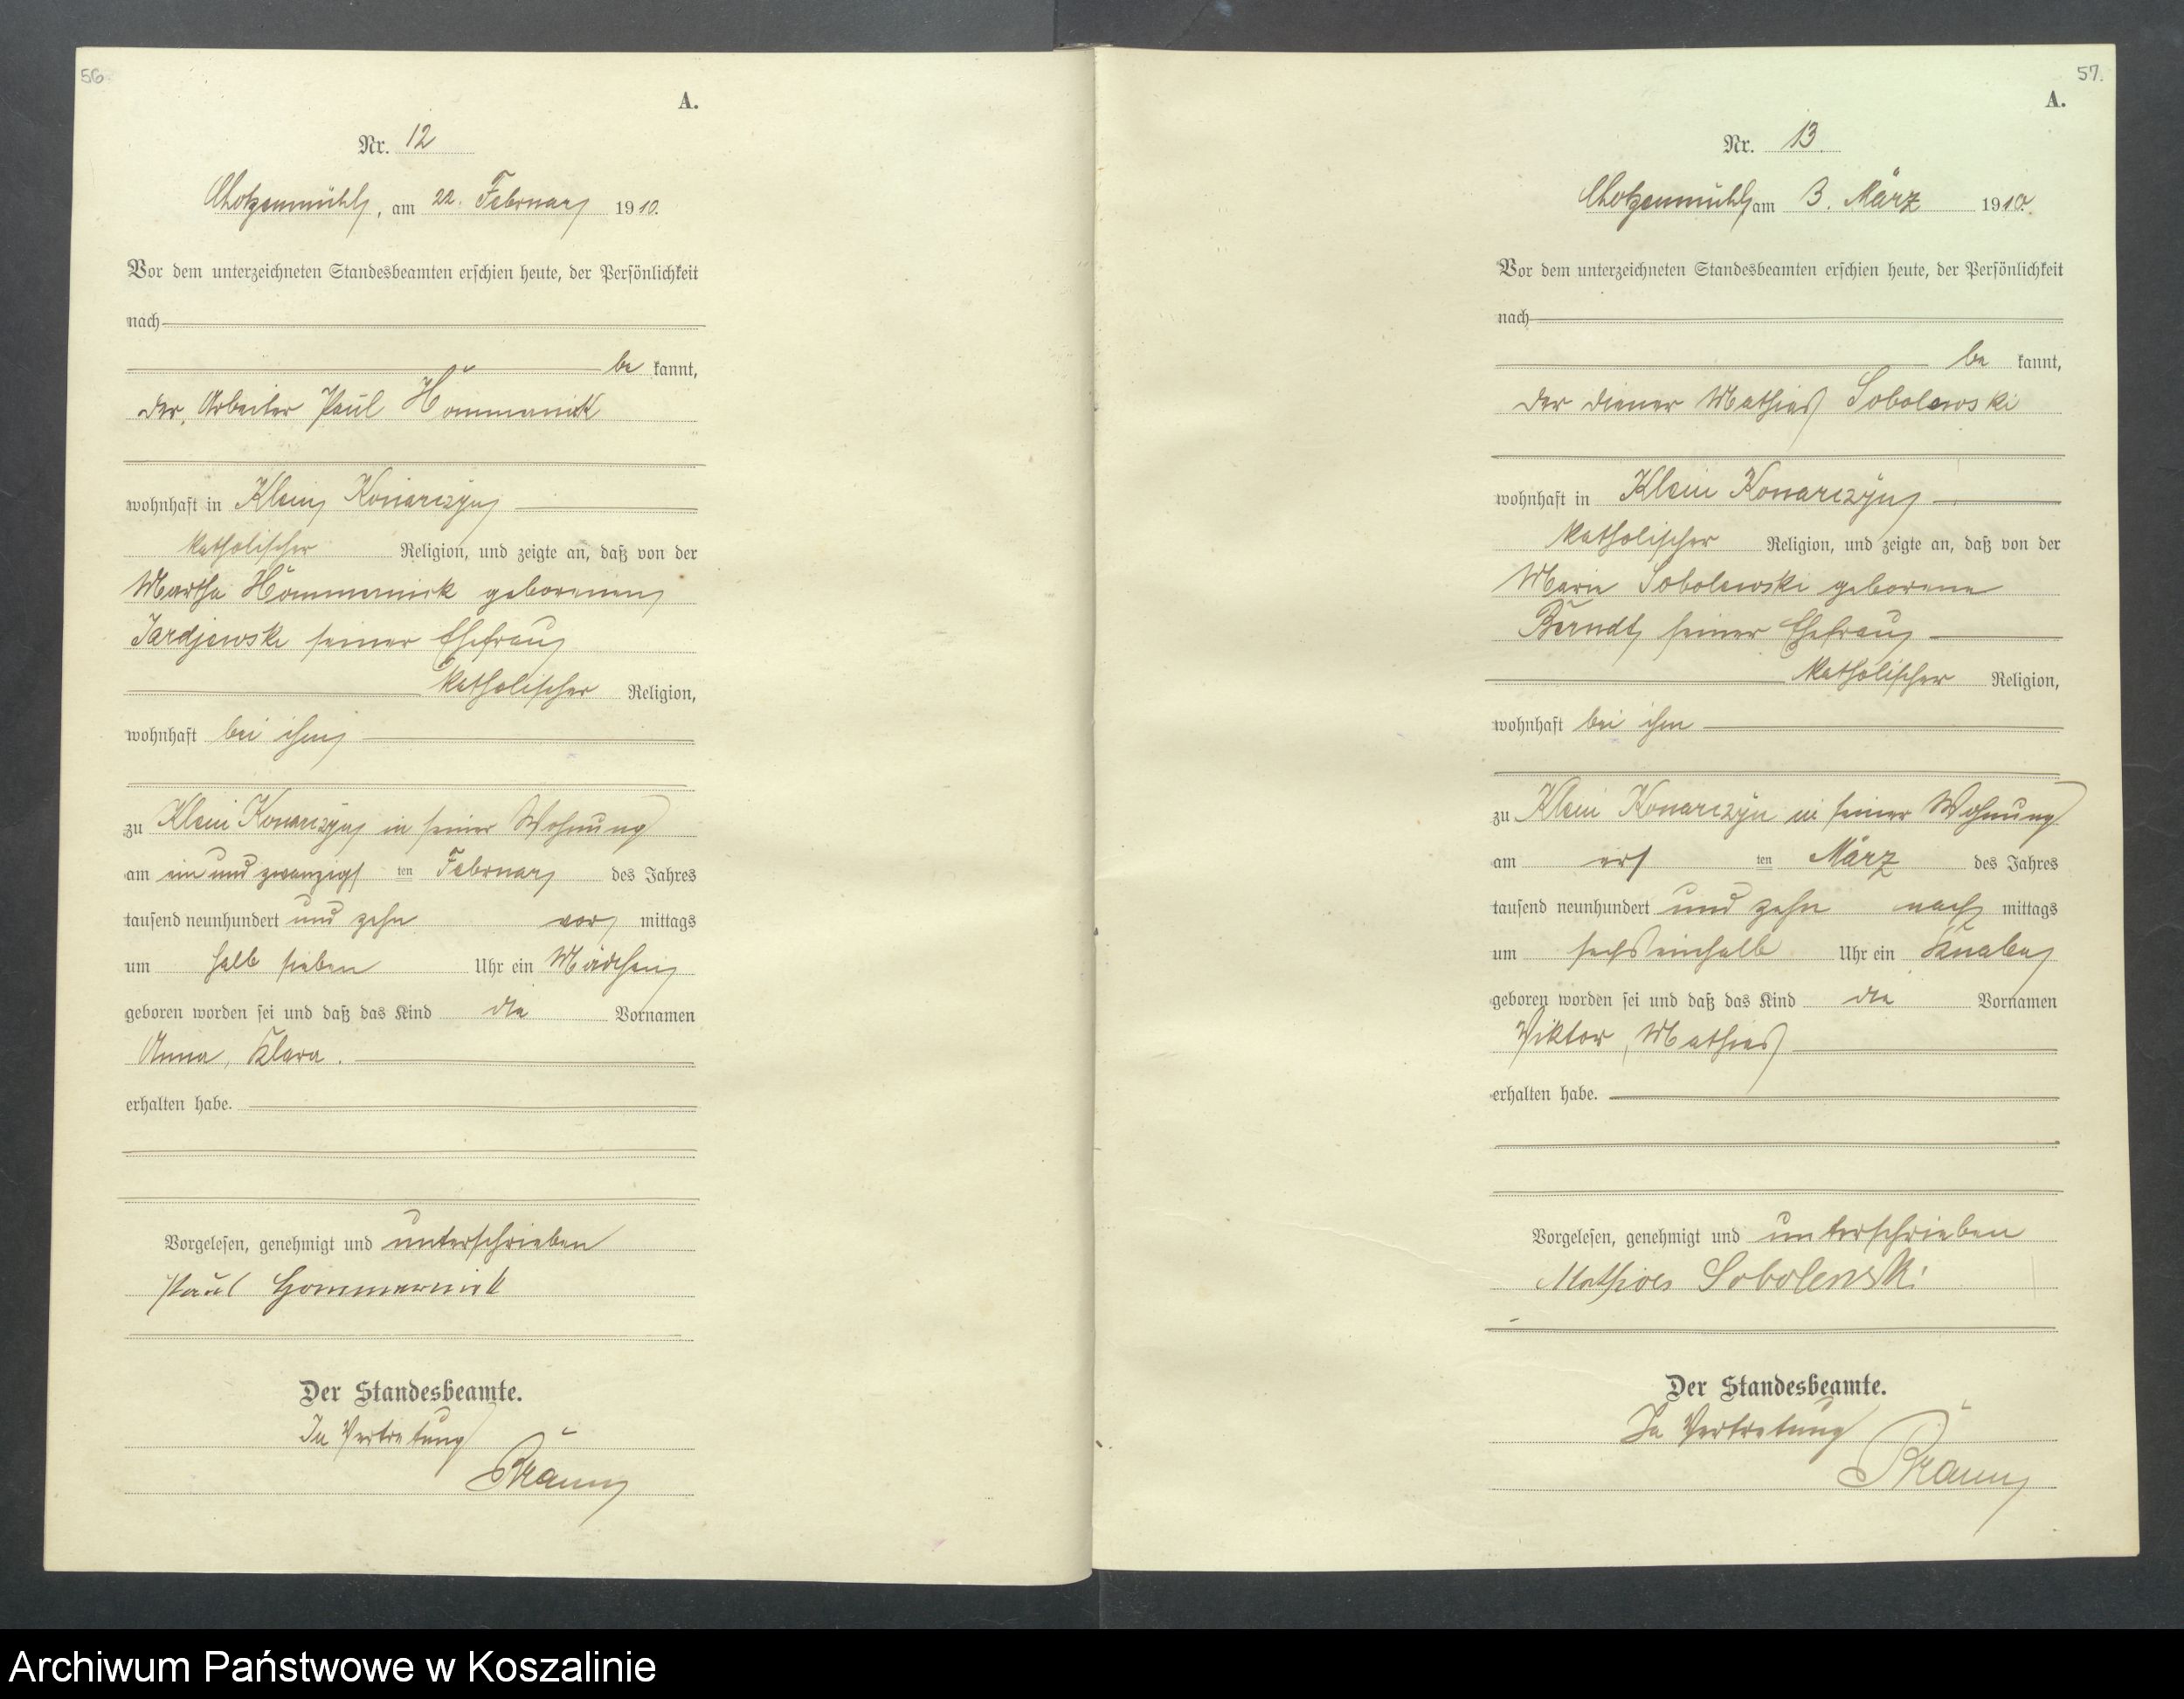 56.
A.
Nr. 12
Chotzenmühl, am 22. Februar 1910.
Vor dem unterzeichneten Standesbeamten erschien heute, der Persönlichkeit
nach
be kannt,
der Arbeiter Paul
wohnhaft in Klein Konarczyn
katholischer Religion, und zeigte an, daß von der
Martha geborenen
seiner Ehefrau
katholischer Religion,
wohnhaft bei ihm
zu Klein Konarczyn in seiner Wohnung
am ein und zwanzigsten Februar des Jahres
tausend neunhundert und zehn vor mittags
um halb sieben Uhr ein Mädchen
geboren worden sei und daß das Kind die Vornamen
Anna, Klara.
erhalten habe.
Vorgelesen, genehmigt und unterschrieben
Paul
Der Standesbeamte.
In Vertretung
57.
A.
Nr. 13.
Chotzenmühl am 3. März 1910.
Vor dem unterzeichneten Standesbeamten erschien heute, der Persönlichkeit
nach
be kannt,
der Diener Mathias Sobolewski
wohnhaft in Klein Konarczyn
katholischer Religion, und zeigte an, daß von der
Marie Sobolewski geborene
Berndt seiner Ehefrau
katholischer Religion,
wohnhaft bei ihm
zu Klein Konarczyn in seiner Wohnung
am ersten März des Jahres
tausend neunhundert und zehn nach mittags
um sechseinhalb Uhr ein Knabe
geboren worden sei und daß das Kind die Vornamen
Viktor, Mathias
erhalten habe.
Vorgelesen, genehmigt und unterschrieben
Mathias Sobolewski
Der Standesbeamte.
In Vertretung
Archiwum Państwowe w Koszalinie